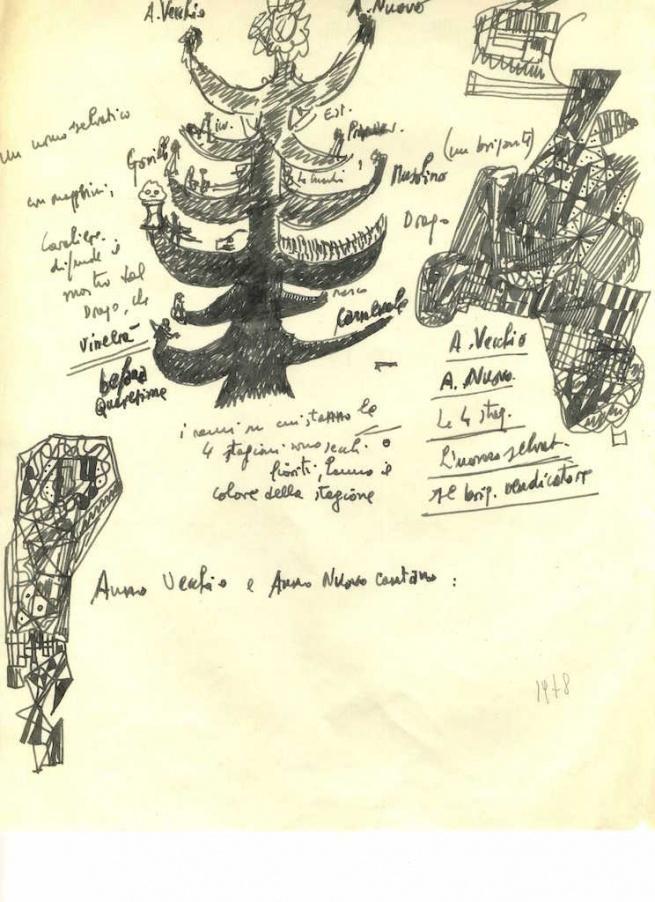 A. Vecchio
A. Nuovo
un uomo selvatico
Inv.
Est.
Gorilla
(un briganti)
Musolino
Cavaliere.
difende il
mostro dal
Drago, che
vincerà
Drago
Carnevale
befana
Quaresima
A. Vecchio
A. Nuovo.
Le 4 stag.
L'uomo selvat.
Il brig. vendicatore
i rami su cui stanno le
4 stagioni sono secchi o
fioriti, hanno il
colore della stagione
Anno Vecchio e Anno Nuovo cantano :
1978